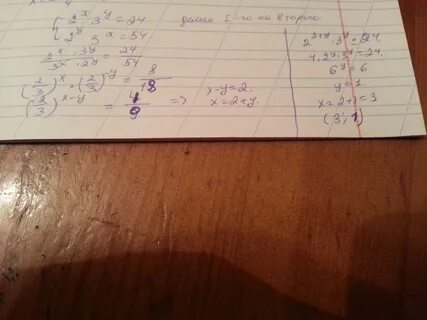 { 2^x 3^y = 24
2^y 3^x = 54
делим I-го на второго
2^x · 3^y / 3^x · 2^y = 24/54
(2/3)^x · (2/3)^-y = 8/18
(2/3)^x-y = 4/9 => x-y=2.
x=2+y.
2^2+y · 3^y = 24.
4 · 2^y · 3^y = 24.
6^y = 6
y = 1
x = 2+1 = 3
(3; 1)